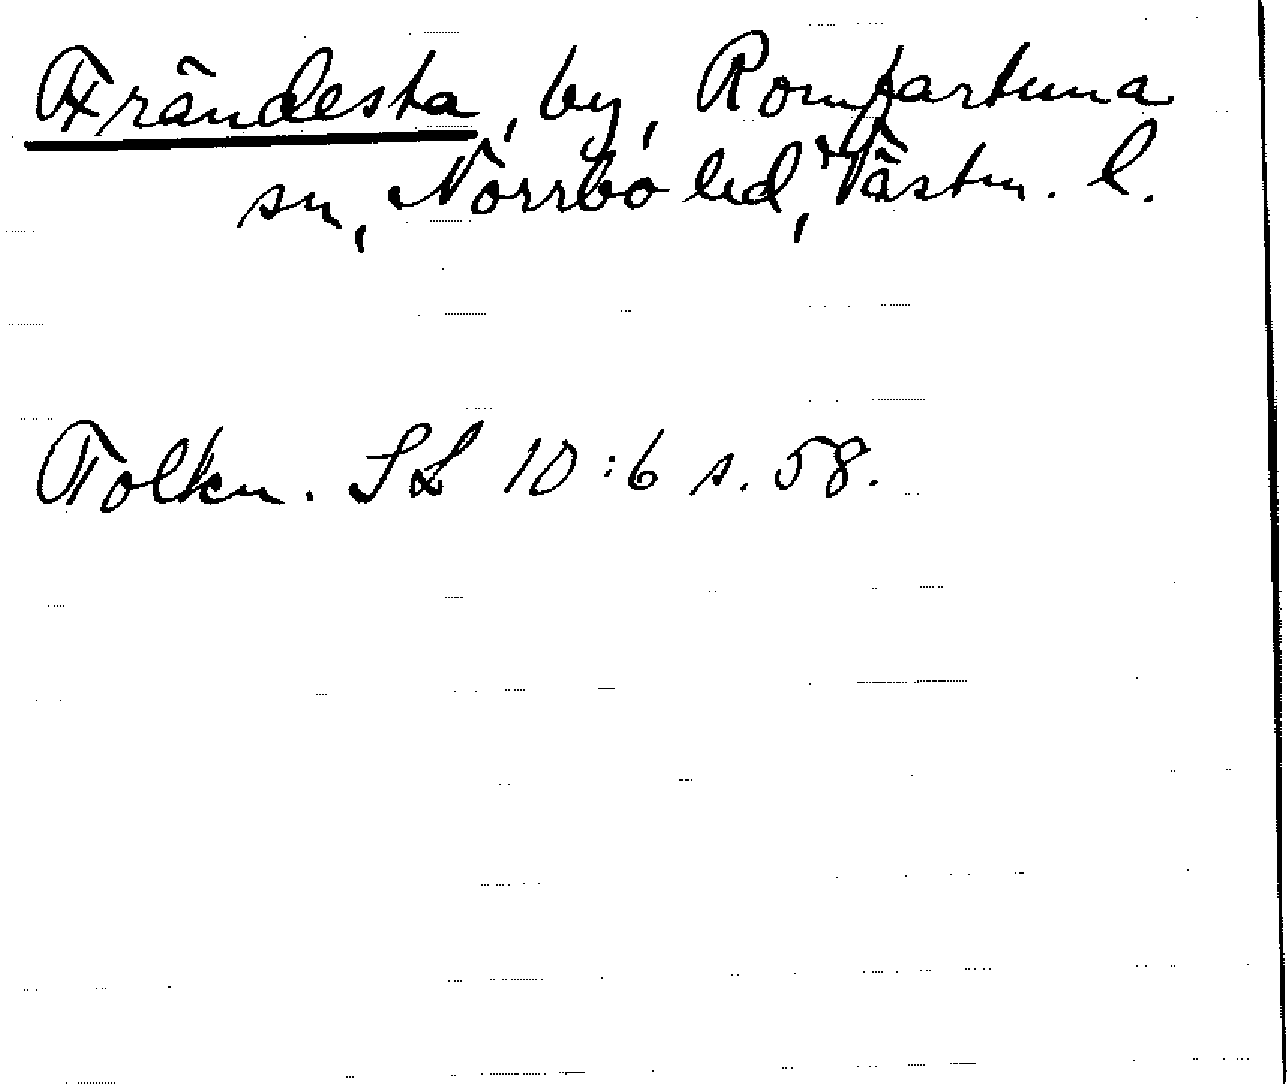 Frändesta, by, Romfartuna
sn, Norrbo hd, Västm. l.
Tolkn. SL 10:6 s. 58.